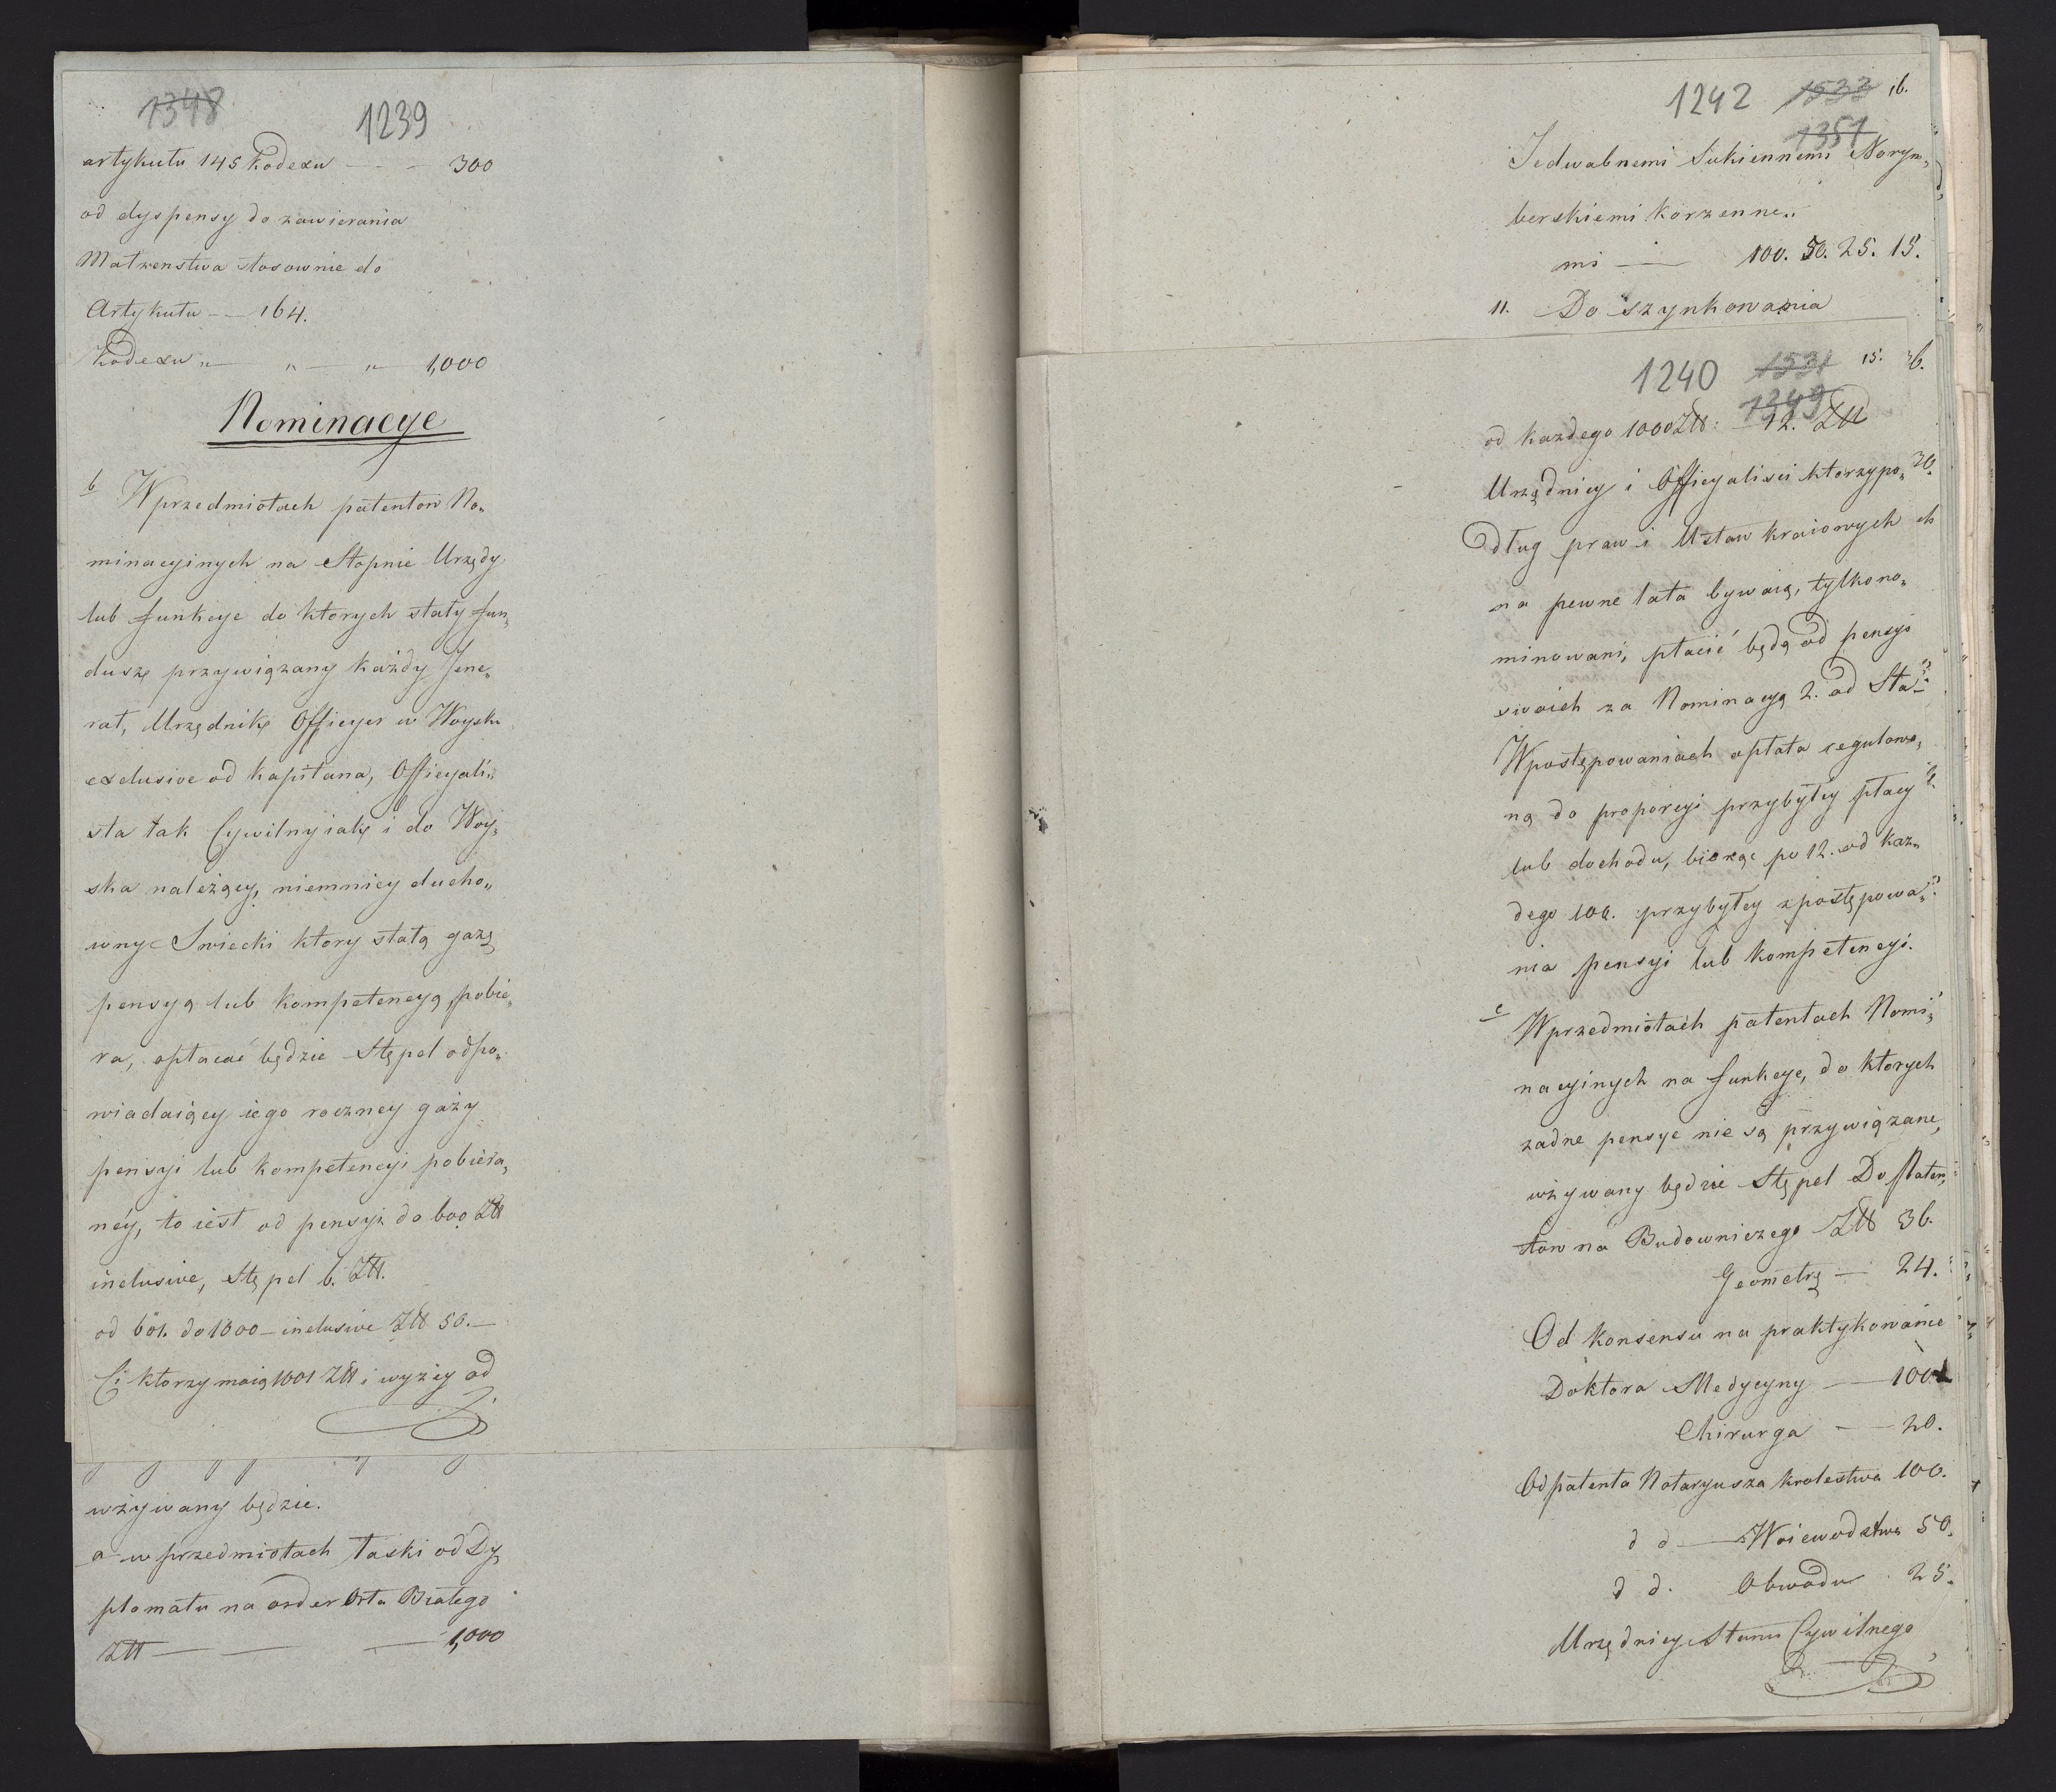 1348 1239
artykułu 145 Kodexu — - - 300
od dyspensy do zawierania
Małżenstwa stosownie do
Artykułu - — 164.
Kodexu „ — „ — „ — 1,000
Nominacye
b W przedmiotach patentow No„
minacyinych na Stopnie Urzędy
lub funkcye do ktorych stały fun„
dusz przywiązany każdy Jene„
rał, Urzędnik Officyer w Woysku
exclusive od kapitana, Officyali„
sta tak Cywilny iak i do Woy„
ska należący, niemniey ducho„
wny Swiecki ktory stałą gażą
pensyą lub kompetencyą pobie„
ra, opłacać będzie Stępel odpo„
wiadaiący iego roczney gaży
pensyi lub kompetencyi pobiera„
néy, to iest od pensyi do 600 Złł
inclusive, Stępel 6. Złł.
od 601. do 1000 — inclusive Złł 50. —
Ci ktorzy maią 1001 Złł i wyżey od
używany będzie.
a w przedmiotach łaski od Dy„
plomatu na order Orła Białego
Złł — — — 1,000
1242 1533 16.
1351
Jedwabnemi Sukiennemi Norym„
berskiemi korzenne„
mi — 100. 50. 25. 15.
11. Do szynkowania
1240 1531 15. 36.
1349
od każdego 1000 Złł: — 12. Złł
Urzędnicy i Officyalisci ktorzy po„ 20.
dług praw i Ustaw kraiowych ch
na pewne lata bywaią, tylko no„
minowani, płacić będą od pensyi
swoich za Nominacyą 2. od Sta
W postępowaniach opłata regulowa„
ną do proporcyi przybyłey płacy
lub dochodu, biorąc po 12. od każ„
dego 100. przybyłey z postępowa„
nia pensyi lub kompetencyi.
c W przedmiotach patentach Nomi„
nacyinych na funkcye, do ktorych
żadne pensye nie są przywiązane,
używany będzie Stępel Do Paten„
tow na Budowniczego Złł 36.
Geometrę — 24.
Od konsensu na praktykowanie
Doktora Medycyny — 100
Chirurga — — 20.
Od patentu Notaryusza krolestwa 100.
d d — Woiewodztwa 50.
d d. Obwodu 25.
Urzędnicy Stanu Cywilnego